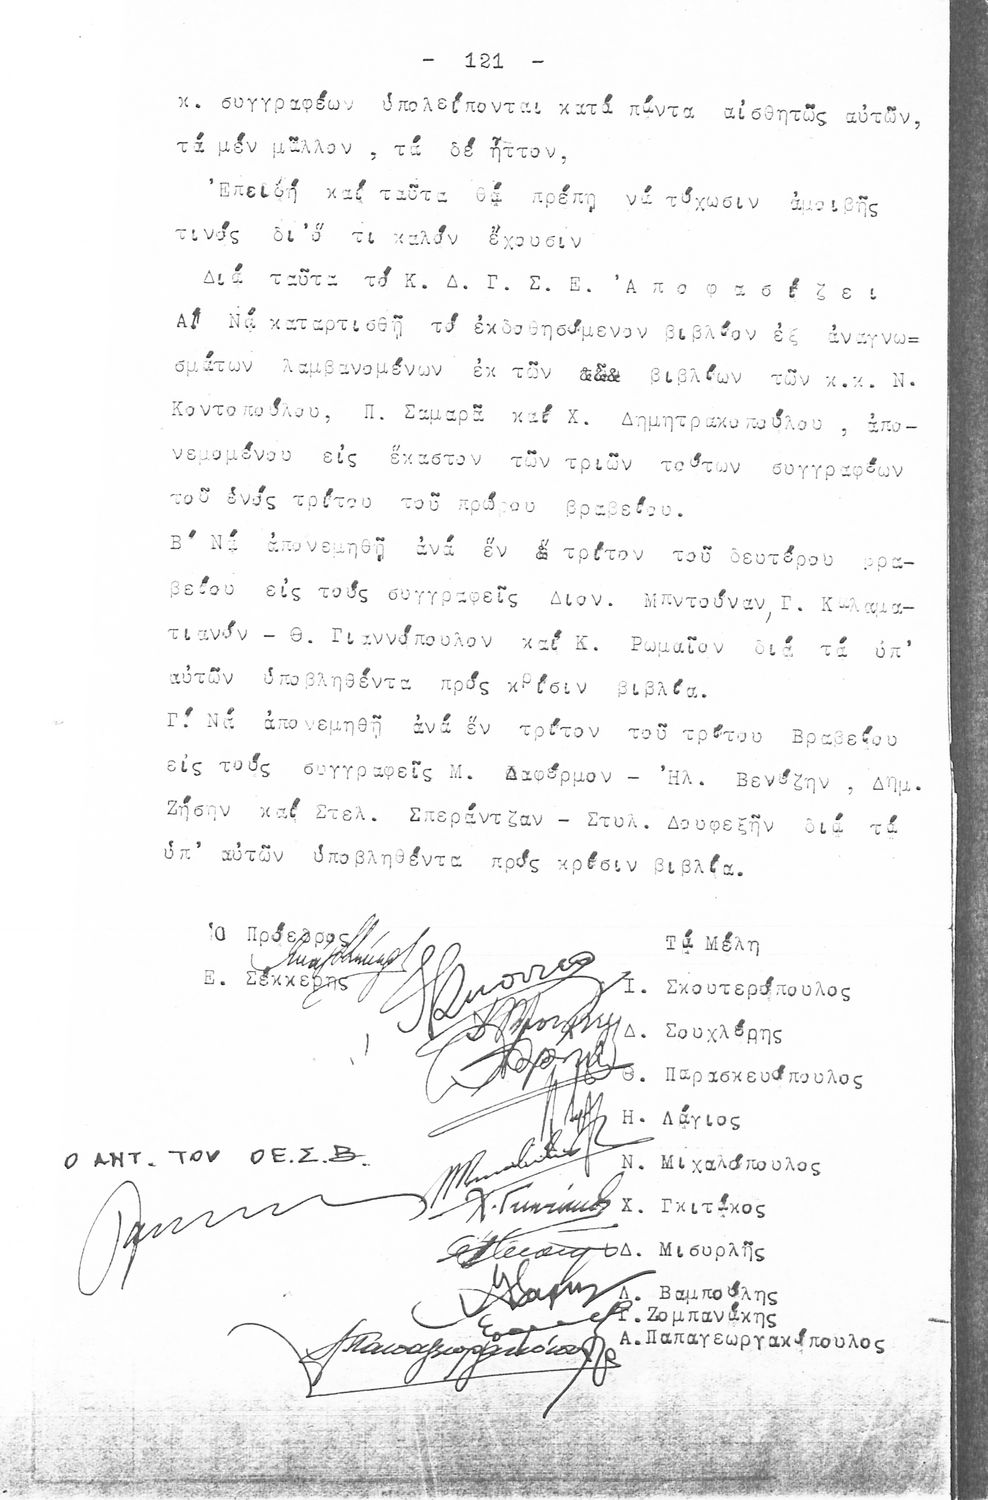 - 121 -
κ. συγγραφέων ὑπολείπονται κατά πάντα αἰσθητῶς αὐτῶν,
τά μέν μᾶλλον , τά δέ ἧττον,
Ἐπειδή καί ταῦτα θά πρέπῃ νά τύχωσιν ἀμοιβῆς
τινός δι'ὅ τι καλόν ἔχουσιν
Διά ταῦτα τό Κ. Δ. Γ. Σ. Ε. Ἀ π ο φ α σ ί ζ ε ι
Α! Νά καταρτισθῇ τό ἐκδοθησόμενον βιβλίον ἐξ ἀναγνω=
σμάτων λαμβανομένων ἐκ τῶν βιβλίων τῶν κ.κ. Ν.
Κοντοπούλου, Π. Σαμαρᾶ καί Χ. Δημητρακοπούλου , ἀπο-
νεμομένου εἰς ἕκαστον τῶν τριῶν τούτων συγγραφέων
τοῦ ἑνός τρίτου τοῦ πρώρου βραβείου.
Β' Νά ἀπονεμηθῇ ἀνά ἕν τρίτον τοῦ δευτέρου βρα-
βείου εἰς τούς συγγραφεῖς Διον. Μπντούναν, Γ. Καλαμα-
τιανόν - Θ. Γιαννόπουλον καί Κ. Ρωμαῖον διά τά ὑπ'
αὐτῶν ὑποβληθέντα πρός κρίσιν βιβλία.
Γ! Νά ἀπονεμηθῇ ἀνά ἕν τρίτον τοῦ τρίτου Βραβείου
εἰς τούς συγγραφεῖς Μ. Δαφέρμον - Ἠλ. Βενέζην , Δημ.
Ζήσην καί Στελ. Σπεράντζαν - Στυλ. Δουφεξῆν διά τά
ὑπ' αὐτῶν ὑποβληθέντα πρός κρίσιν βιβλία.
Ὁ Πρόεδρος
Τά Μέλη
Ε. Σέκκερης
Ι. Σκουτερόπουλος
Δ. Σουχλέρης
Θ. Παρασκευόπουλος
Η. Λάγιος
Ο ΑΝΤ. ΤΟΥ ΟΕ.Σ.Β.
Ν. Μιχαλόπουλος
Χ. Γκιτάκος
Δ. Μισυρλῆς
Λ. Βαμπούλης
Γ. Ζομπανάκης
Α.Παπαγεωργακόπουλος